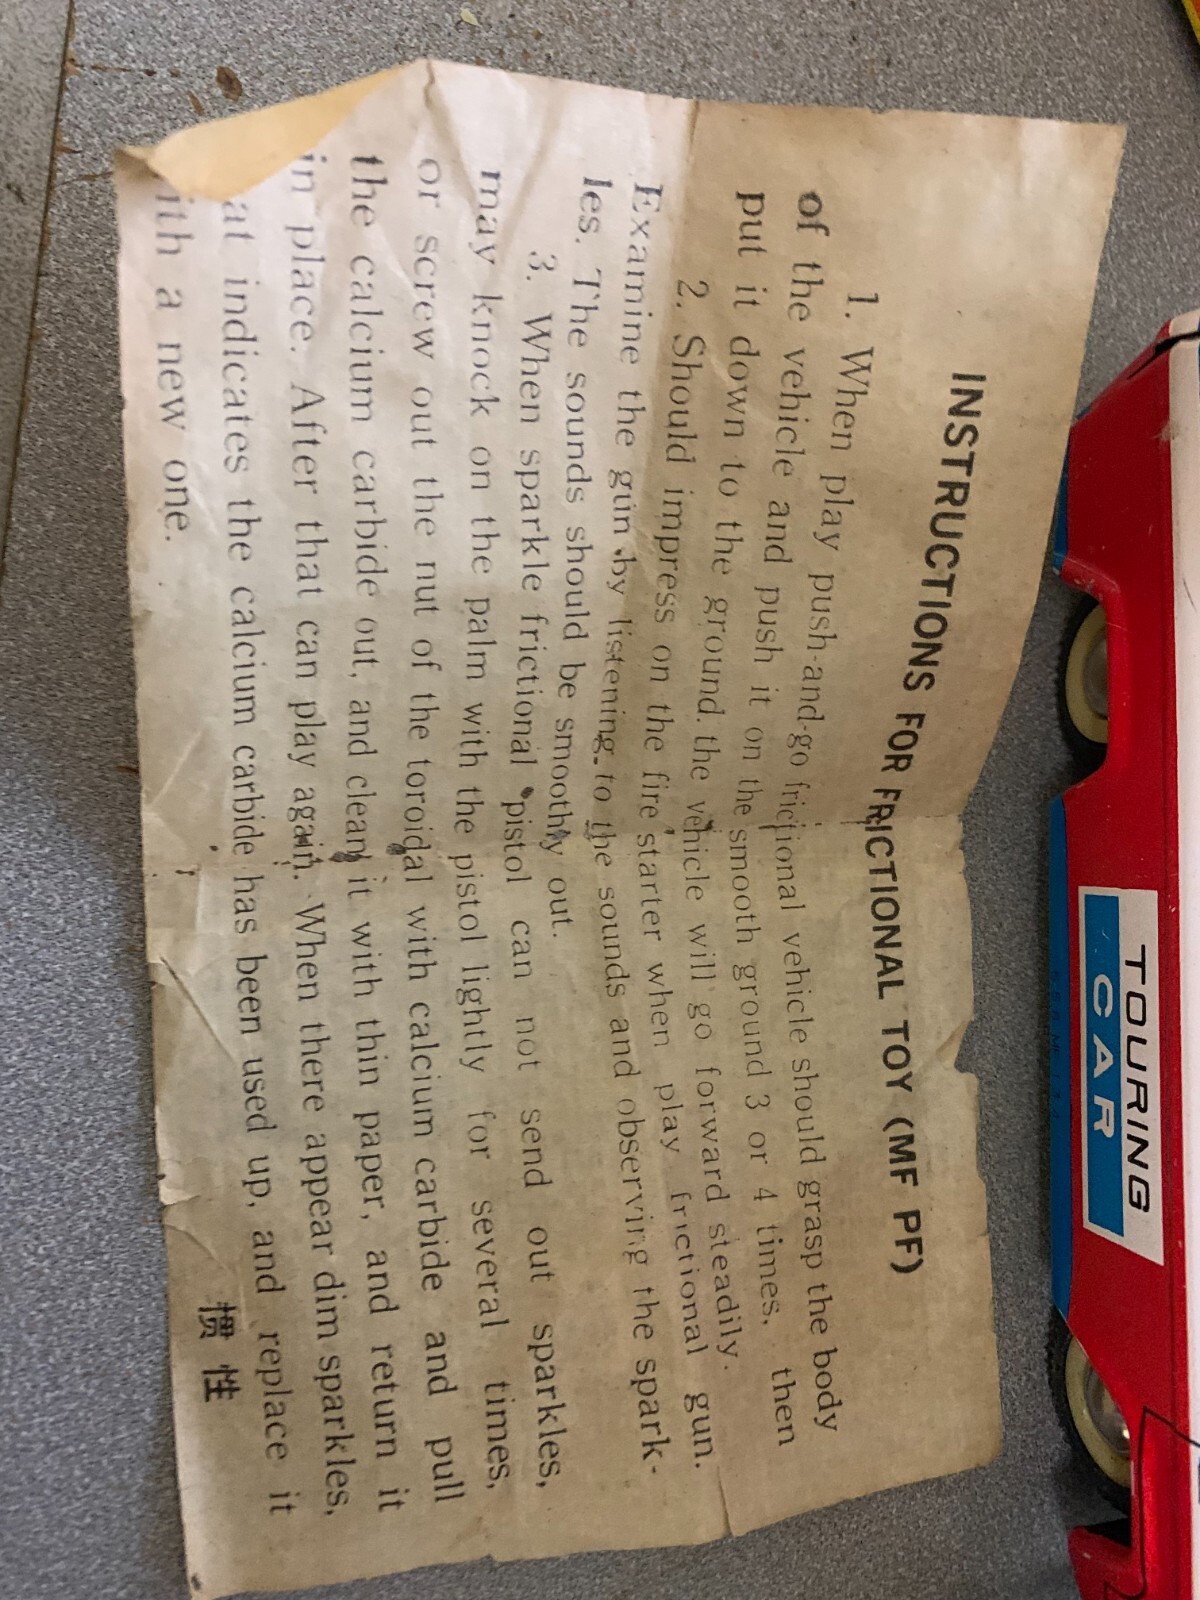 INSTRUCTIONS FOR FRICTIONAL TOY (MF PF)
1. When play push-and-go frictional vehicle should grasp the body
of the vehicle and push it on the smooth ground 3 or 4 times, then
put it down to the ground. the vehicle will go forward steadily.
2. Should impress on the fire starter when play frictional gun.
Examine the gun by listening to the sounds and observing the spark-
les. The sounds should be smoothly out.
3. When sparkle frictional pistol can not send out sparkles,
may knock on the palm with the pistol lightly for several times,
or screw out the nut of the toroidal with calcium carbide and pull
the calcium carbide out, and clean it with thin paper, and return it
in place. After that can play again. When there appear dim sparkles,
at indicates the calcium carbide has been used up, and replace it
ith a new one.
惯 性
TOURING
CAR